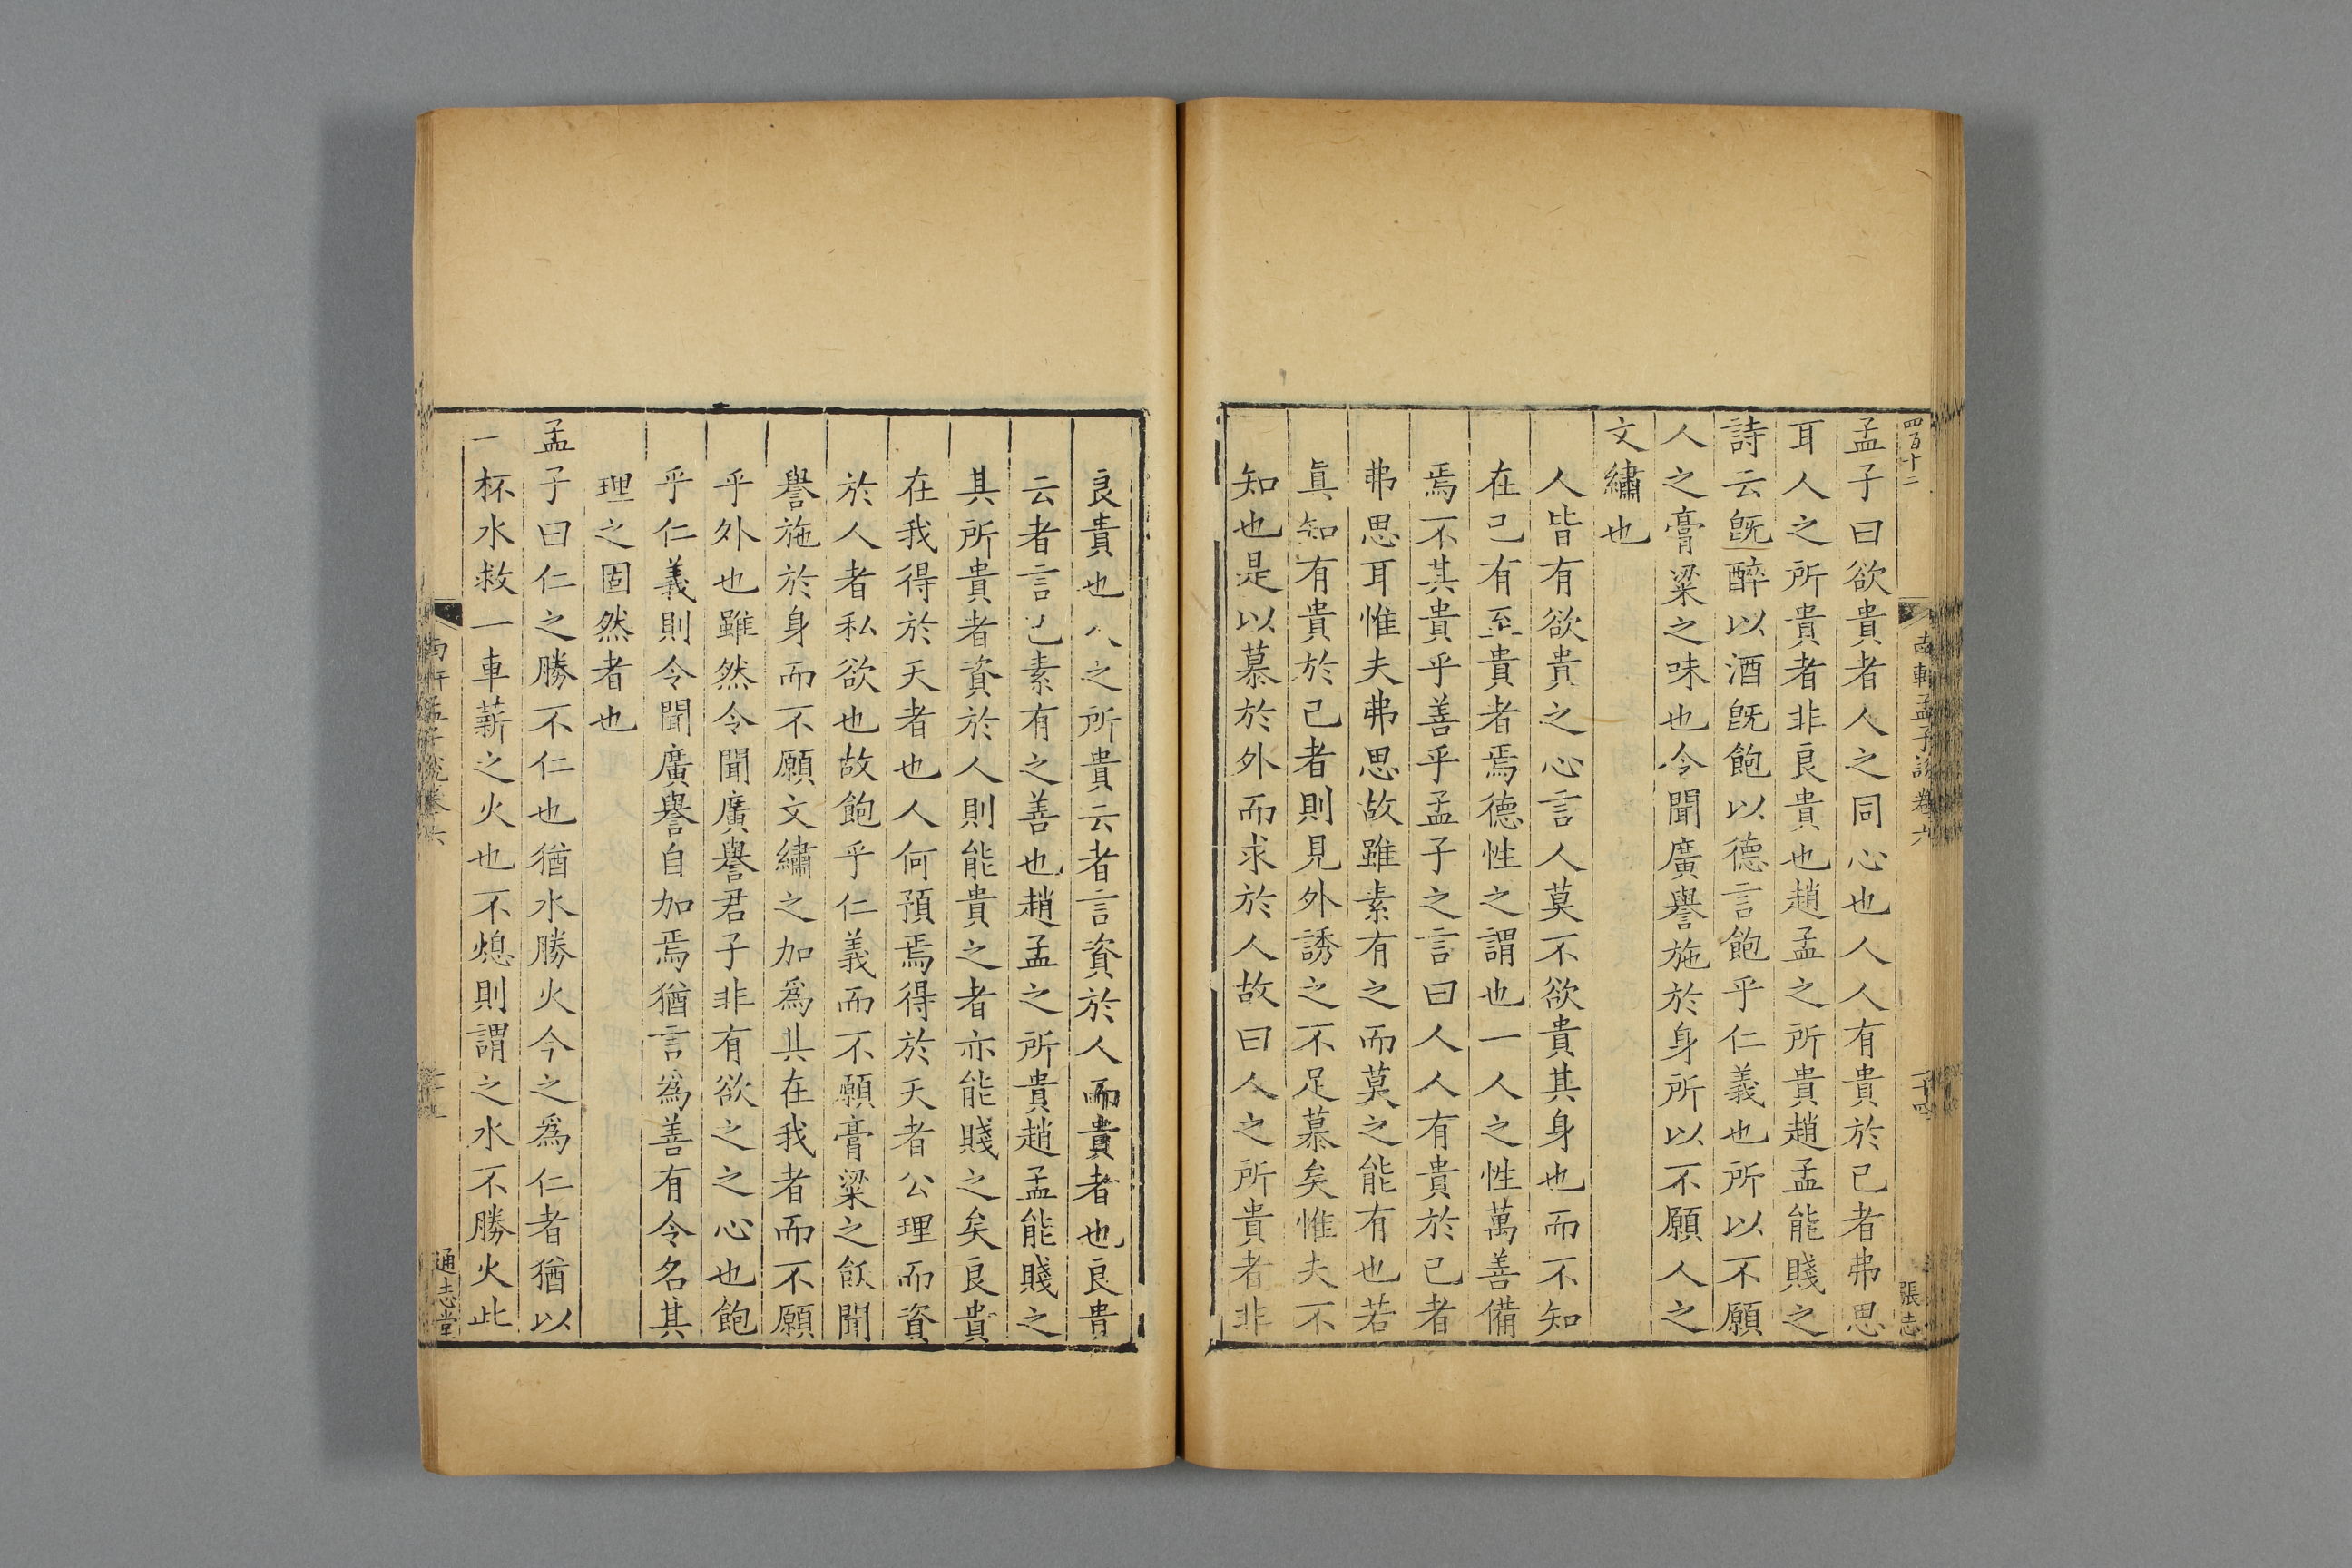 四百十二
南軒孟子說卷六
二十四
張志
孟子曰欲貴者人之同心也人人有貴於己者弗思
耳人之所貴者非良貴也趙孟之所貴趙孟能賤之
詩云旣醉以酒旣飽以德言飽乎仁義也所以不願
人之膏粱之味也令聞廣譽施於身所以不願人之
文繡也
人皆有欲貴之心言人莫不欲貴其身也而不知
在己有至貴者焉德性之謂也一人之性萬善備
焉不其貴乎善乎孟子之言曰人人有貴於己者
弗思耳惟夫弗思故雖素有之而莫之能有也若
眞知有貴於己者則見外誘之不足慕矣惟夫不
知也是以慕於外而求於人故曰人之所貴者非
良貴也人之所貴云者言資於人而貴者也良貴
云者言己素有之善也趙孟之所貴趙孟能賤之
其所貴者資於人則能貴之者亦能賤之矣良貴
在我得於天者也人何預焉得於天者公理而資
於人者私欲也故飽乎仁義而不願膏粱之飫聞
譽施於身而不願文繡之加爲其在我者而不願
乎外也雖然令聞廣譽君子非有欲之之心也飽
乎仁義則令聞廣譽自加焉猶言爲善有令名其
理之固然者也
孟子曰仁之勝不仁也猶水勝火今之爲仁者猶以
一杯水救一車薪之火也不熄則謂之水不勝火此
南軒孟子說卷六
通志堂